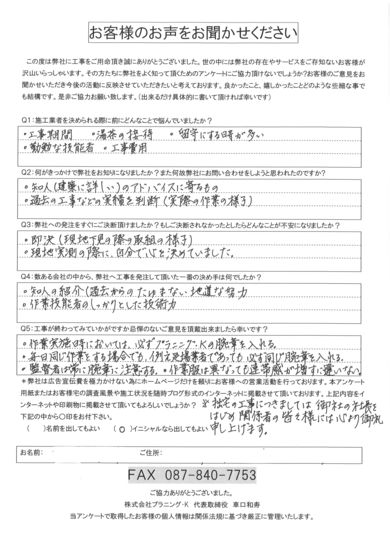 お客様のお声をお聞かせください
この度は弊社に工事をご用命頂き誠にありがとうございました。世の中には弊社の存在やサービスをご存知ないお客様が
沢山いらっしゃいます。その方たちに弊社をよく知って頂くためのアンケートにご協力頂けないでしょうか?お客様のご意見をお
聞かせいただき今後の活動に反映させていただきたいと考えております。良かったこと、嬉しかったことどのような些細な事で
も結構です。是非ご協力お願い致します。(出来るだけ具体的に書いて頂ければ幸いです)
Q1:施工業者を決められる際に前にどんなことで悩んでいましたか?
・工事期間 ・湯茶の接待 ・留守にする時が多い
・勤勉な技能者 ・工事費用
Q2:何がきっかけで弊社をお知りになりましたか?また何故弊社にお問い合わせをしようと思われたのですか?
・知人(建築に詳しい)のアドバイスに寄るもの
・過去の工事などの実積を判断(実際の作業の様子)
Q3:弊社への発注をすぐにご決断頂けましたか?もしご決断されなかったとしたらどんなことが不安になりましたか?
・即決(現地下見の際の取組の様子)
・現地実測の際に、自分で心を決めていました。
Q4:数ある会社の中から、弊社へ工事を発注して頂いた一番の決め手は何でしたか?
・知人の紹介(過去からのたゆまない地道な努力
・作業技能者のしっかりとした技術力
Q5:工事が終わってみていかがですか忌憚のないご意見を頂戴出来ましたら幸いです?
・作業実施時においては、必ずプラニング・Kの腕章を入れる。
・毎日同じ作業をする場合でも、例え足場業者であっても必ず同じ腕章を入れる。
・監督者は常に腕章に注意する。・作業服は異なっても連帯感が増すに違いない。
*弊社は広告宣伝費を極力かけない為にホームページだけを頼りにお客様への営業活動を行っております。本アンケート
用紙またはお客様宅の調査風景や施工状況を随時ブログ形式のインターネットや印刷物に掲載させて頂いております。上記内容をイ
ンターネットや印刷物に掲載させて頂いてもよろしいでしょうか?
下記の中から○印をお付下さい。
( )名前を出してもよい (○)イニシャルなら出してもよい
※拙宅の工事につきましては御社の社長を
はじめ関係者の皆々様には心より御礼
申し上げます。
お名前: ご住所:
FAX 087-840-7753
ご協力ありがとうございました。
株式会社プラニング・K 代表取締役 車口和寿
当アンケートで取得したお客様の個人情報は関係法規に基づき厳正に管理いたします。